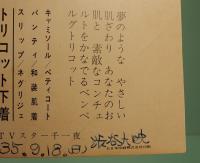 夢のような やさしい
肌ざわり あなたのお
肌と 素敵なコンチェ
ルトをかなでるベンベ
ルグトリコット
キャミソール/ペティコート
パンティ/和装肌着
スリップ/ネグリジェ
トリコット下着
TVスター千一夜
35.9.18(日)
渋谷大映